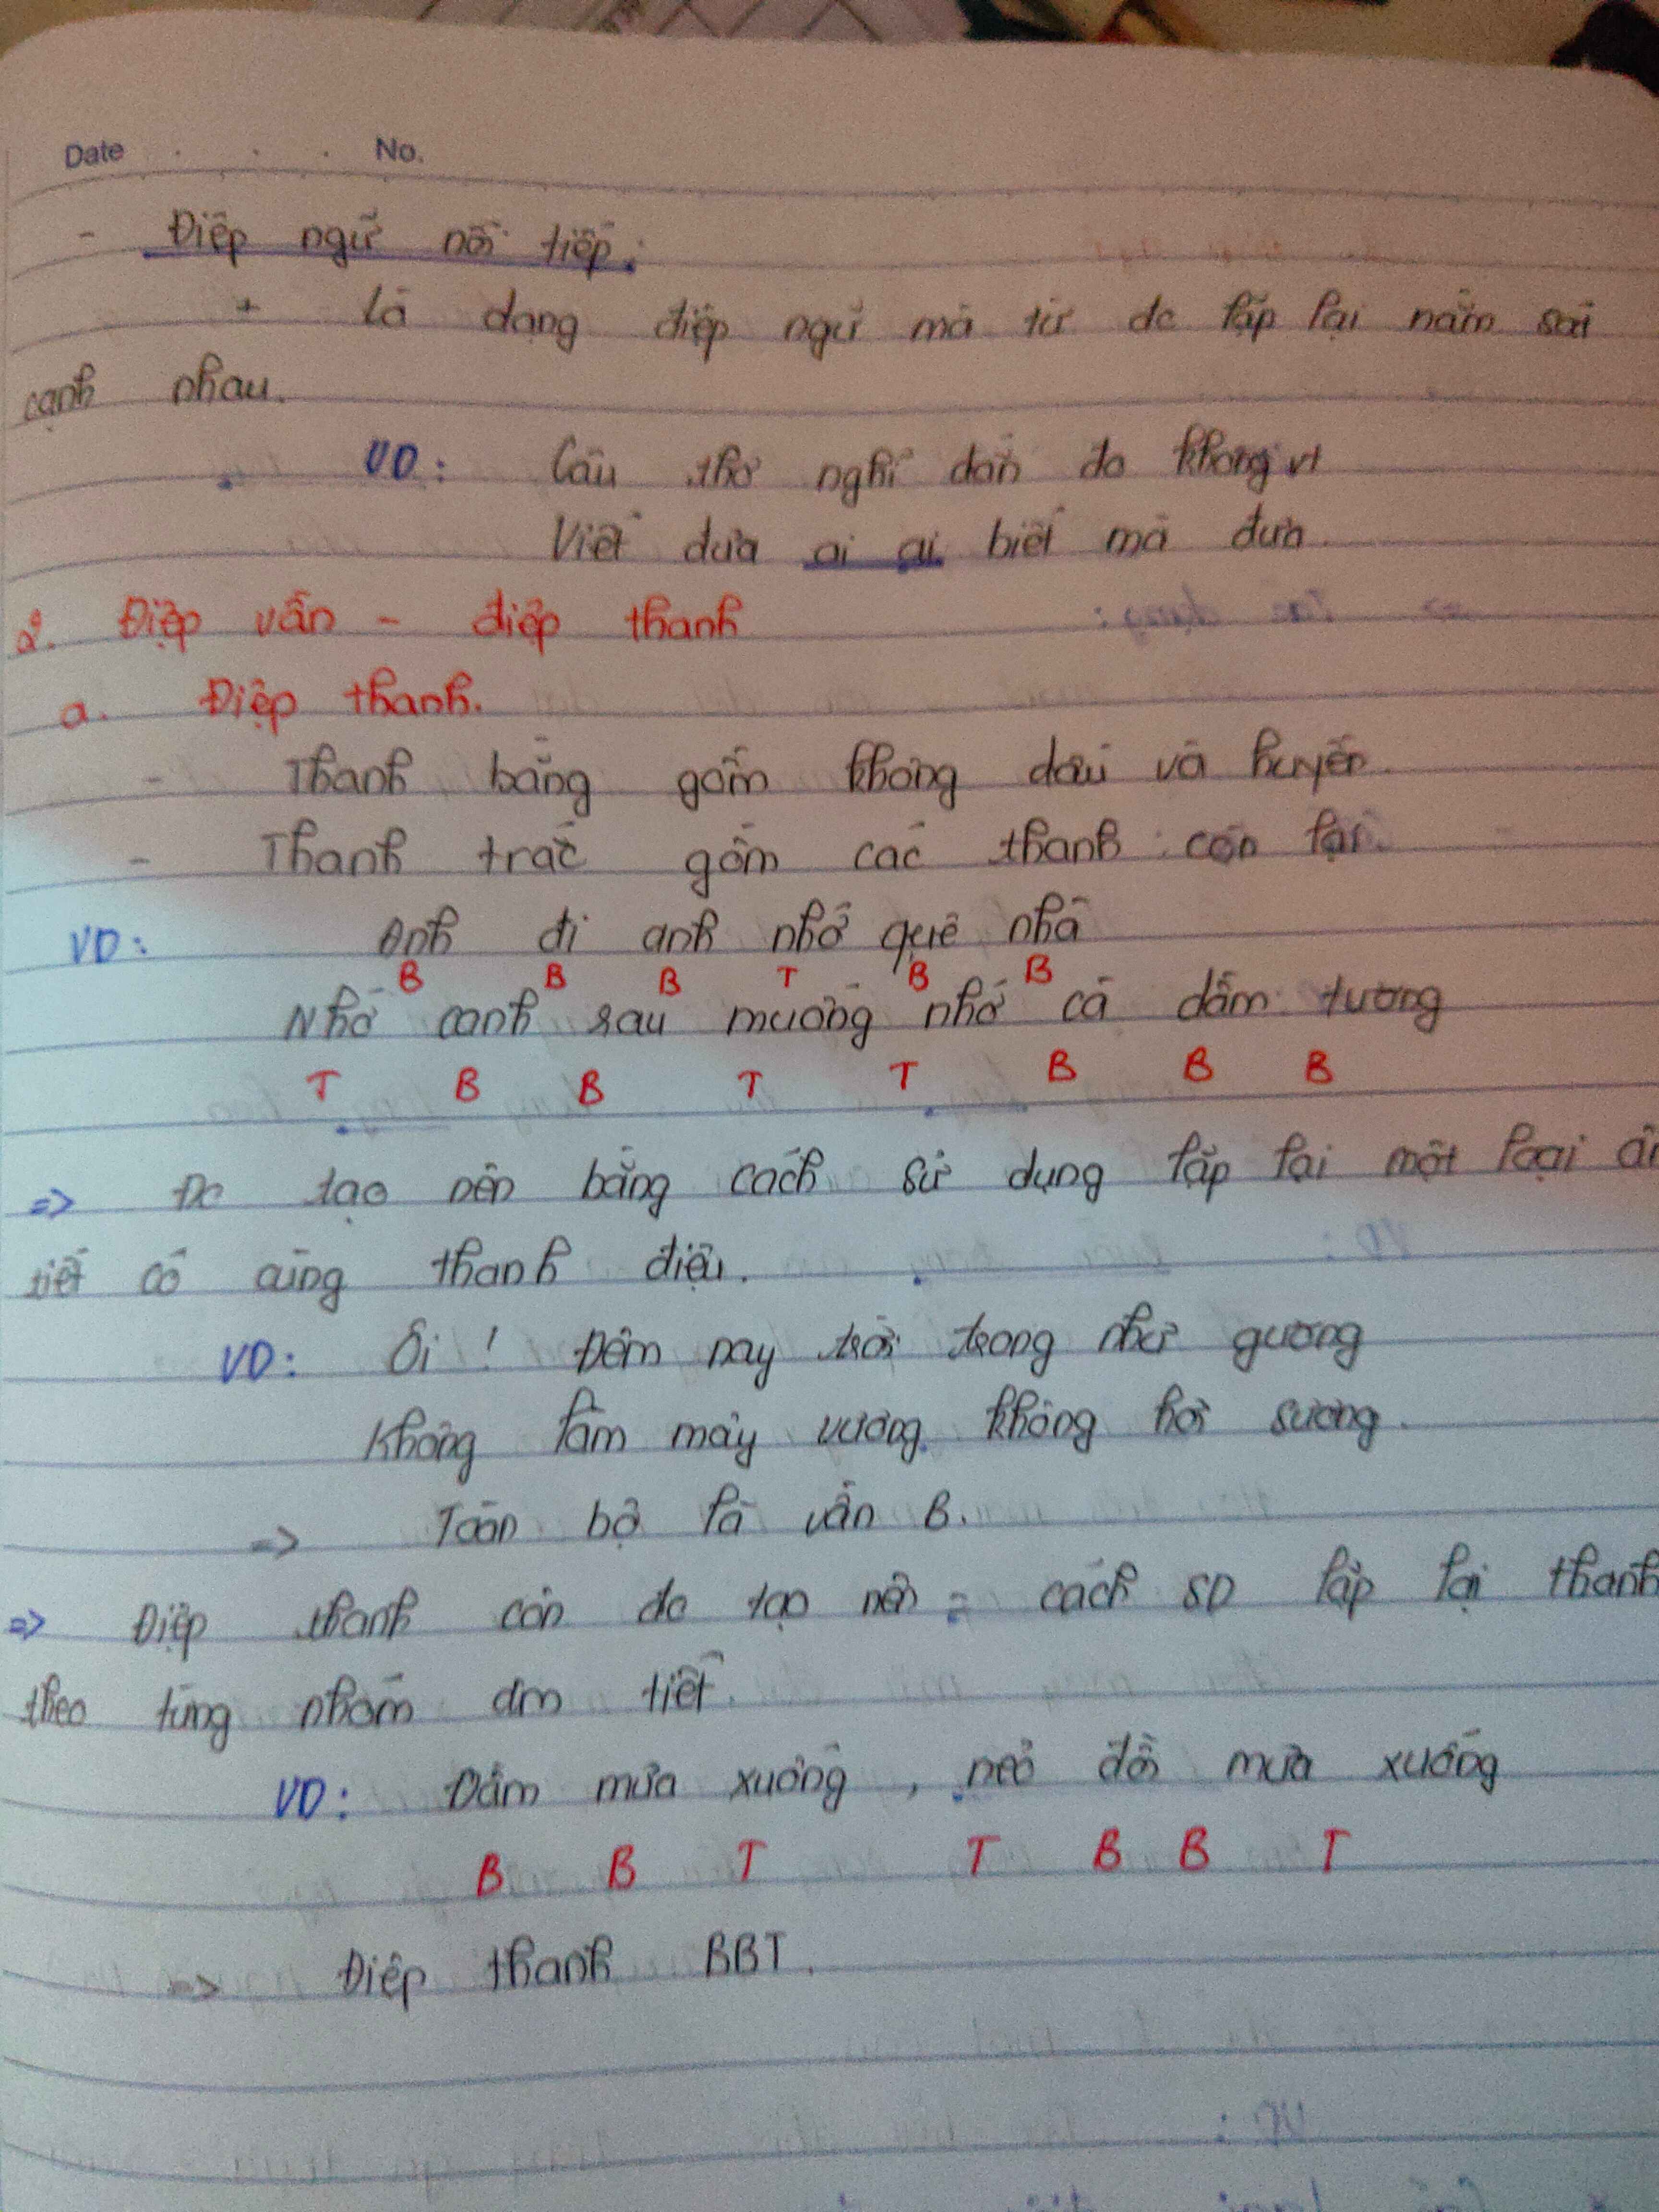 Date No.
- Điệp ngữ nối tiếp:
+ là dạng điệp ngữ mà từ đc lặp lại nằm sát
cạnh nhau.
VD: Câu thơ nghĩ đắn đo không vt
Viết đưa ai ai biết mà đưa.
2. Điệp vần - điệp thanh
a. Điệp thanh.
- Thanh bằng gồm không dấu và huyền.
- Thanh trắc gồm các thanh còn lại.
VD: Anh đi anh nhớ quê nhà
B B B T B B
Nhớ canh rau muống nhớ cà dầm tương
T B B T T B B B
=> Đc tạo nên bằng cách sử dụng lặp lại một loại âm
tiết có cùng thanh điệu.
VD: Ôi ! Đêm nay trời trong như gương
Không làn mây vương không hơi sương.
=> Toàn bộ là vần B.
=> Điệp thanh còn đc tạo nên = cách SD lặp lại thanh
theo từng nhóm âm tiết.
VD: Dầm mưa xuống, nẻo đồi mưa xuống
B B T T B B T
=> Điệp thanh BBT.
VD: